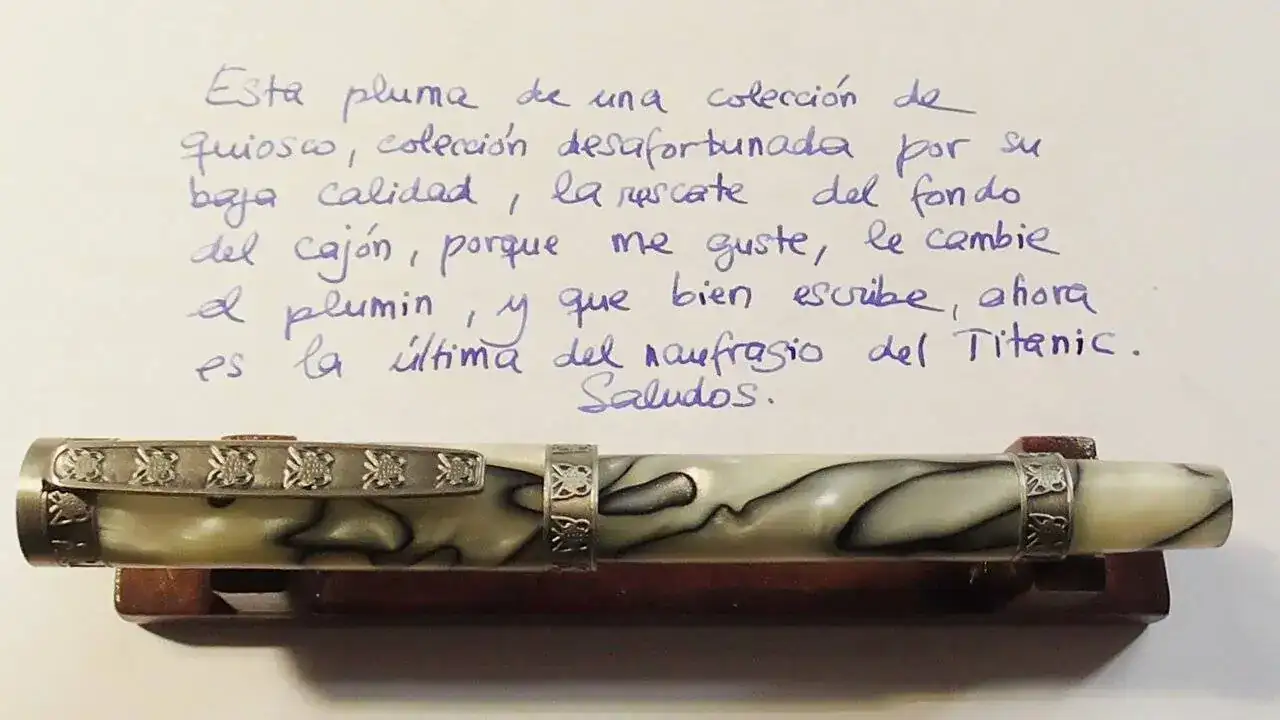 Esta pluma de una colección de
quiosco, colección desafortunada por su
baja calidad, la rescate del fondo
del cajón, porque me guste, le cambie
el plumin, y que bien escribe, ahora
es la última del naufragio del Titanic.
Saludos.